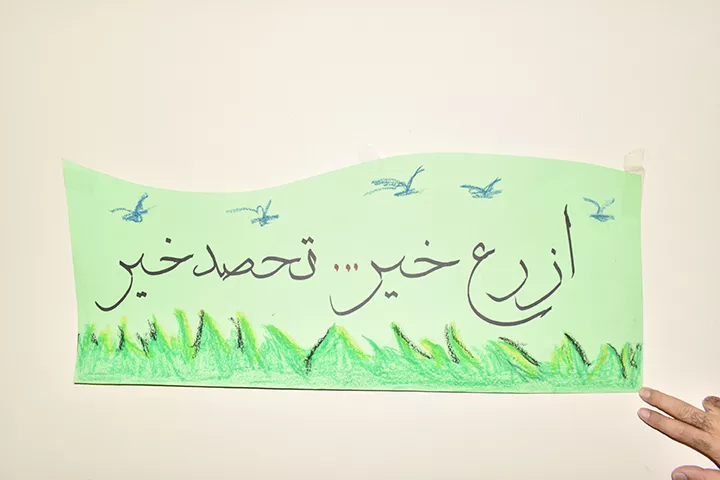 ازرع خير... تحصد خير